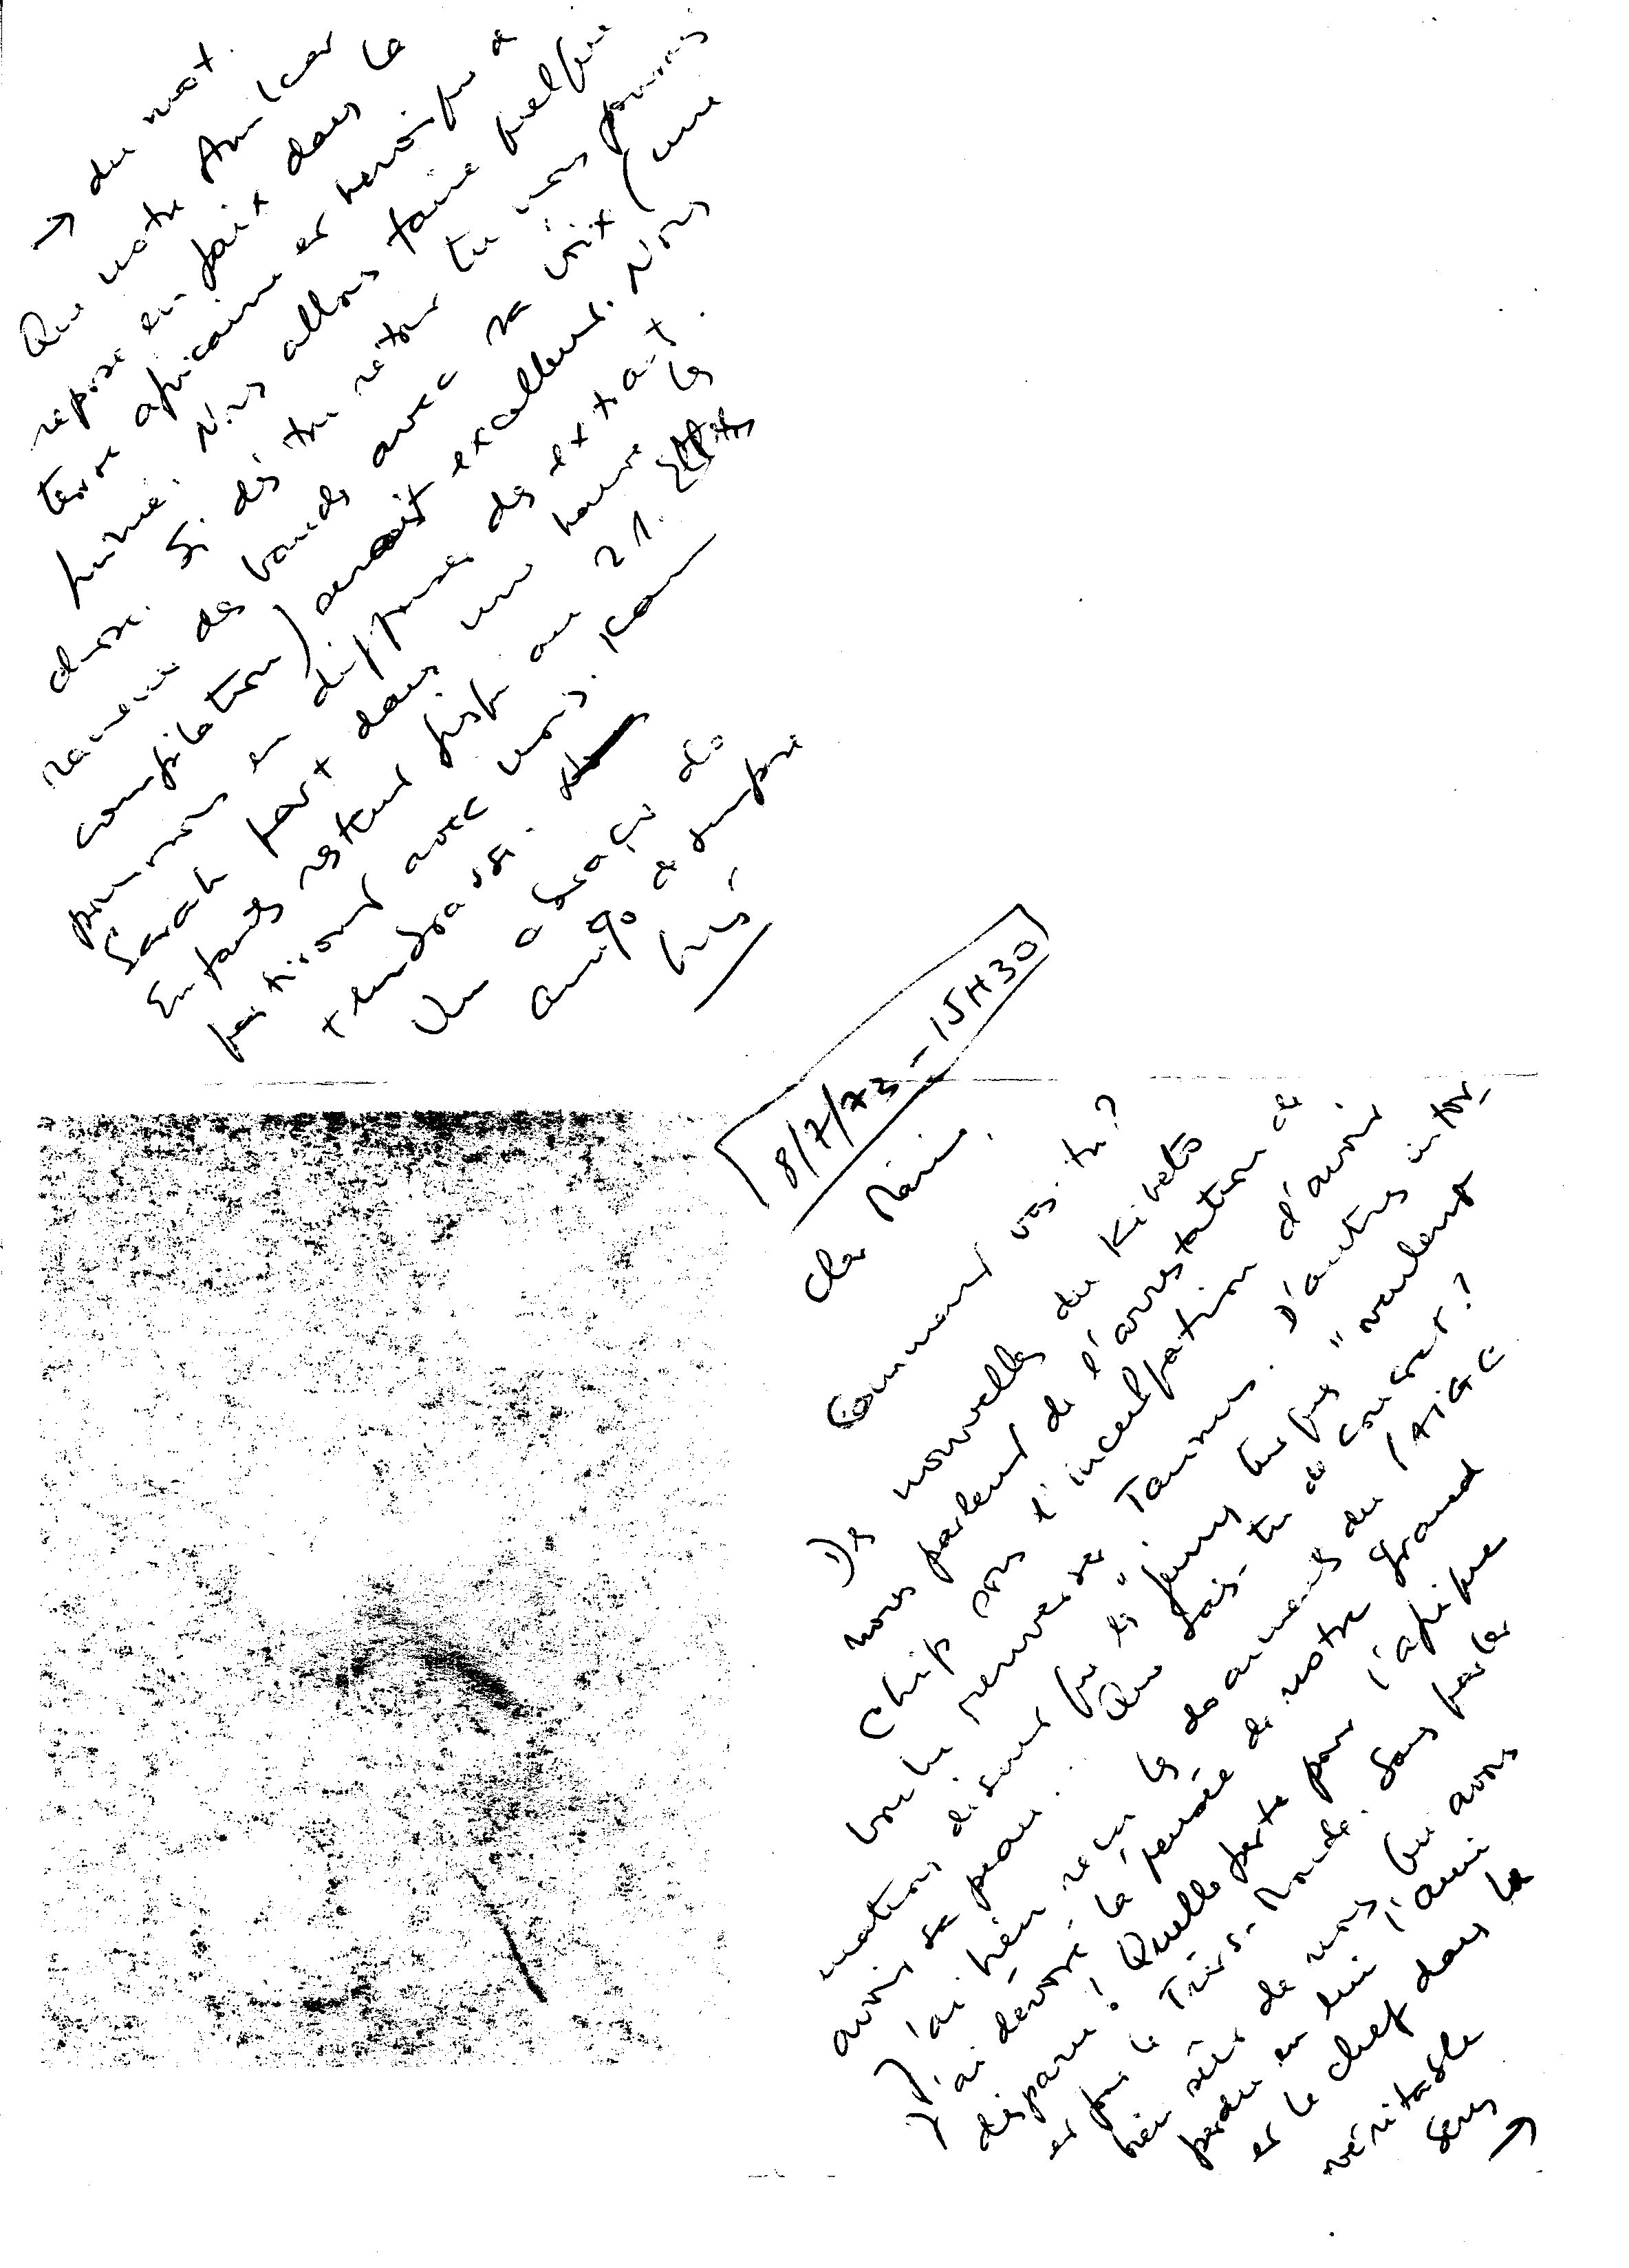 8/7/73 - 15H30
Cher Mário,
Comment vas-tu ?
Des nouvelles du Kibets
nous parlent de l'arrestation de
Chip sous l'inculpation d'avoir
voulu renverser Taunus. D'autres infor
mations disent que les "jeunes turques" veulent
avoir sa peau. Que sais-tu de concret ?
J'ai bien reçu les documents du PAIGC
J'ai dévoré la pensée de notre grand
disparu ! Quelle perte pour l'Afrique
et pour le Tiers-Monde. Sans parler
bien sûr de nous qui avons
perdu en lui l'ami
et le chef dans le
véritable
sens
→
→ du mot.
Que notre Amilcar
repose en paix dans la
terre africaine et héroïque de
Guinée. Nous allons faire quelque
chose. Si dès ton retour tu nous pouvais
ramener des bandes avec sa voix (une
compilation) serait excellent. Nous
pourrons en diffuser des extraits.
Sarah part dans une heure les
Enfants restent jusqu'au 21. Ils
partiront avec nous. Kam
t'embrasse.
Um abraço do
amigo de sempre